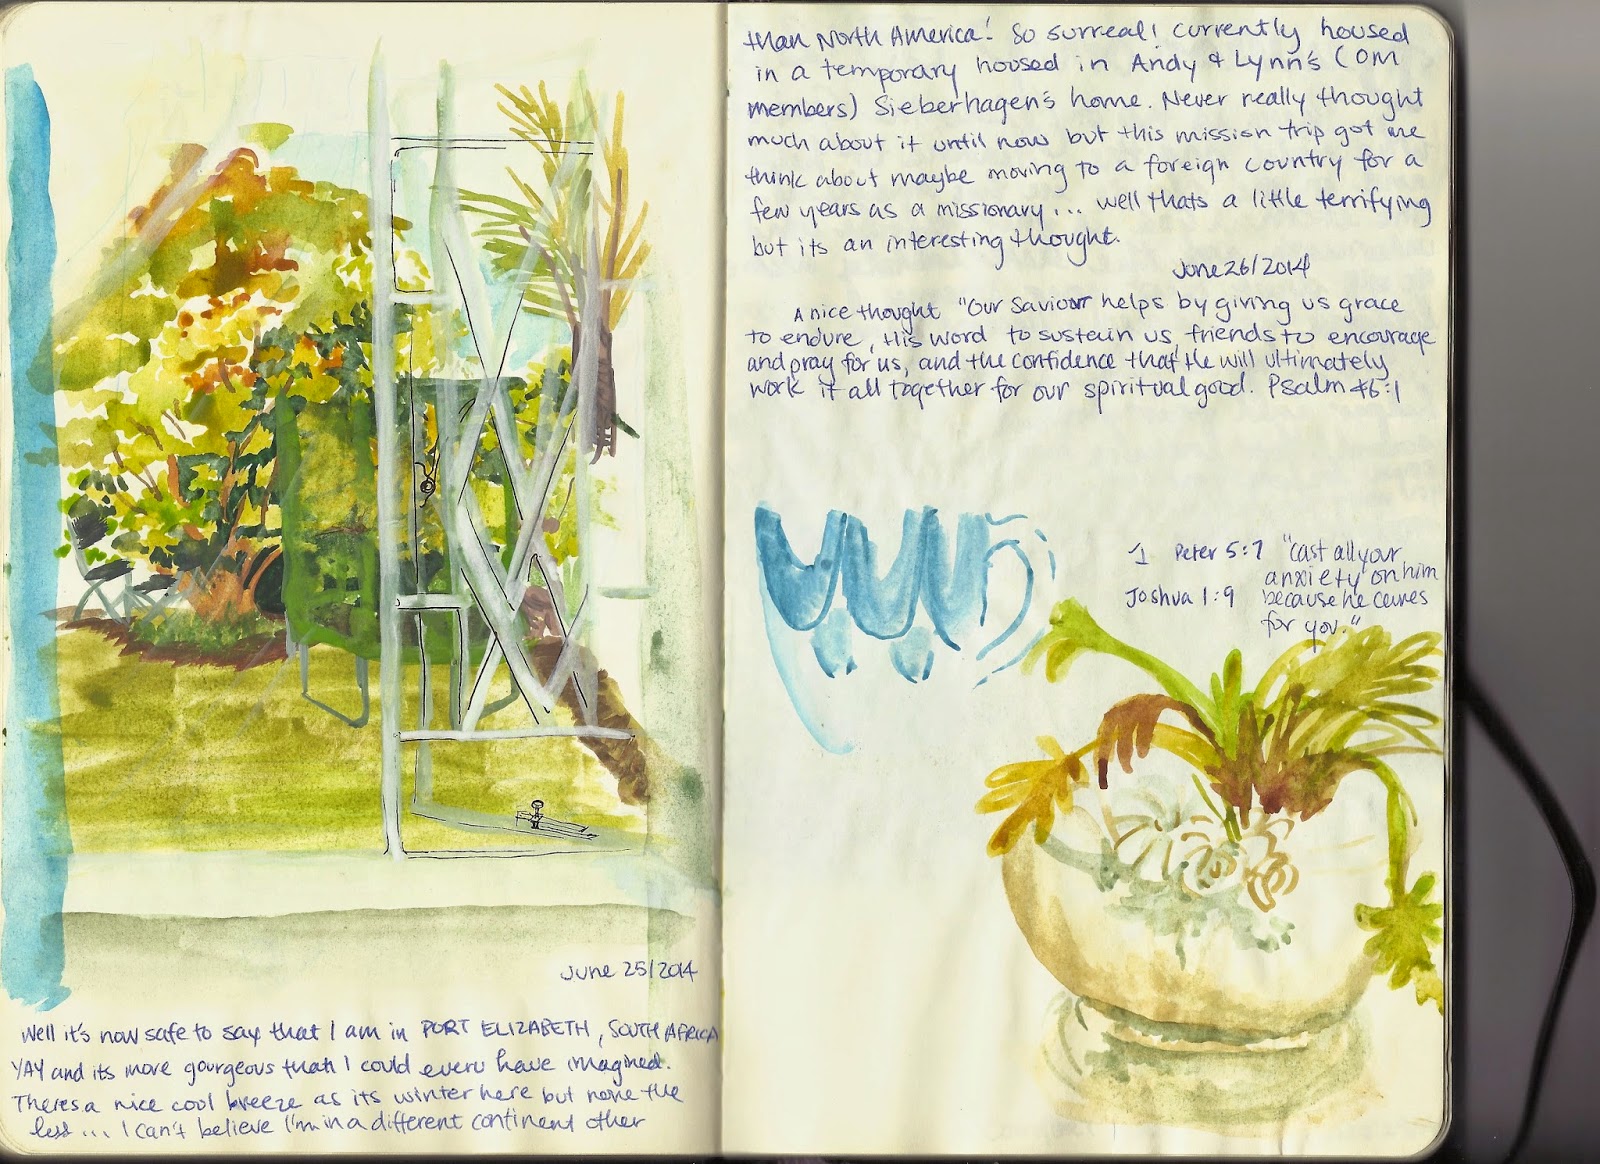 June 25/2014
Well it's now safe to say that I am in PORT ELIZABETH, SOUTH AFRICA
YAY and its more gourgeous that I could everu have imagined.
Theres a nice cool breeze as its winter here but none the
less... I can't believe I'm in a different continent other
than North America! So surreal! currently housed
in a temporary housed in Andy & Lynn's (OM
members) Sieberhagen's home. Never really thought
much about it until now but this mission trip got me
think about maybe moving to a foreign country for a
few years as a missionary... well thats a little terrifying
but its an interesting thought.
June 26/2014
A nice thought "Our Saviour helps by giving us grace
to endure, His word to sustain us, friends to encourage
and pray for us, and the confidence that He will ultimately
work it all together for our spiritual good. Psalm 46:1
1 Peter 5:7 "Cast all your
anxiety on him
Joshua 1:9 because he cares
for you."